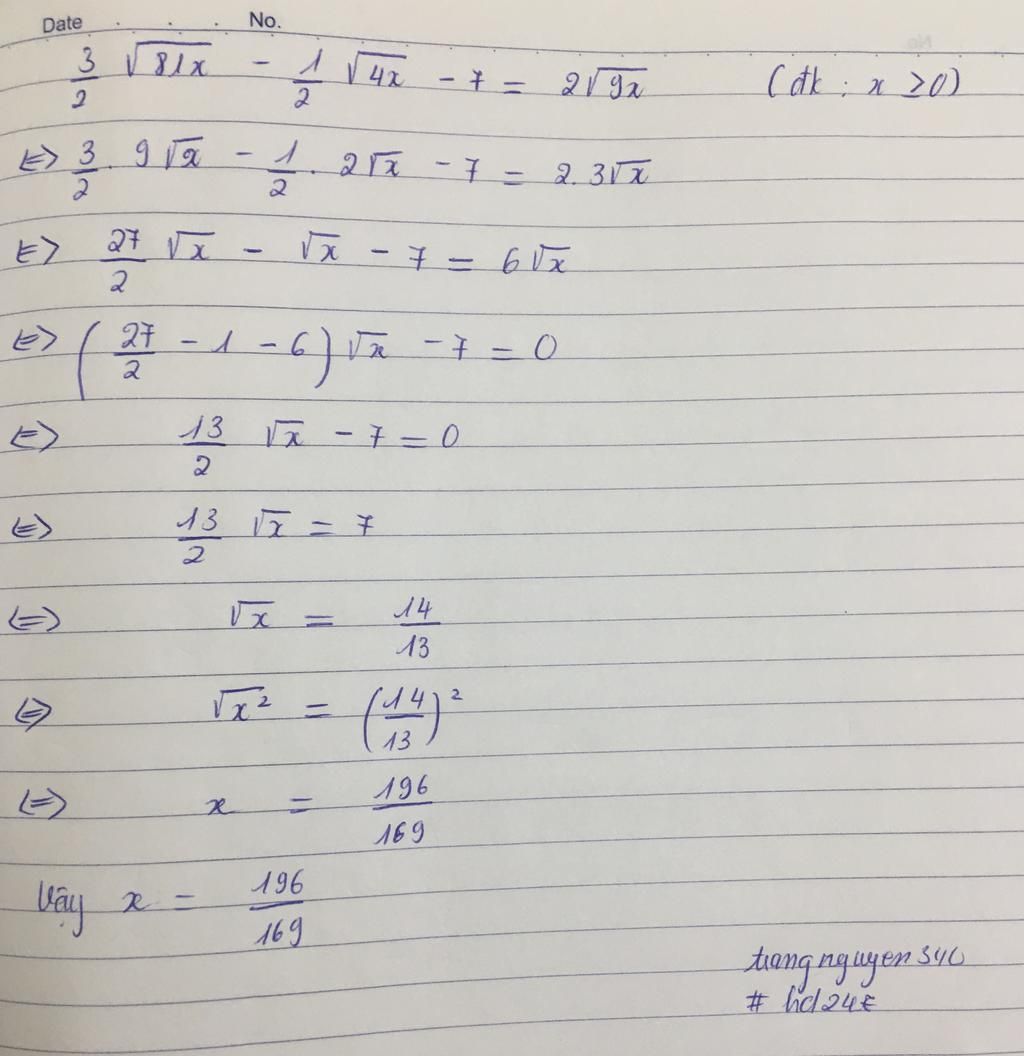 Date No.
3/2 √81x - 1/2 √4x - 7 = 2√9x (đk : x ≥0)
<=> 3/2 . 9√x - 1/2 . 2√x - 7 = 2.3√x
<=> 27/2 √x - √x - 7 = 6√x
<=> (27/2 - 1 - 6)√x - 7 = 0
<=> 13/2 √x - 7 = 0
<=> 13/2 √x = 7
<=> √x = 14/13
<=> √x² = (14/13)²
<=> x = 196/169
Vậy x = 196/169
trangnguyen